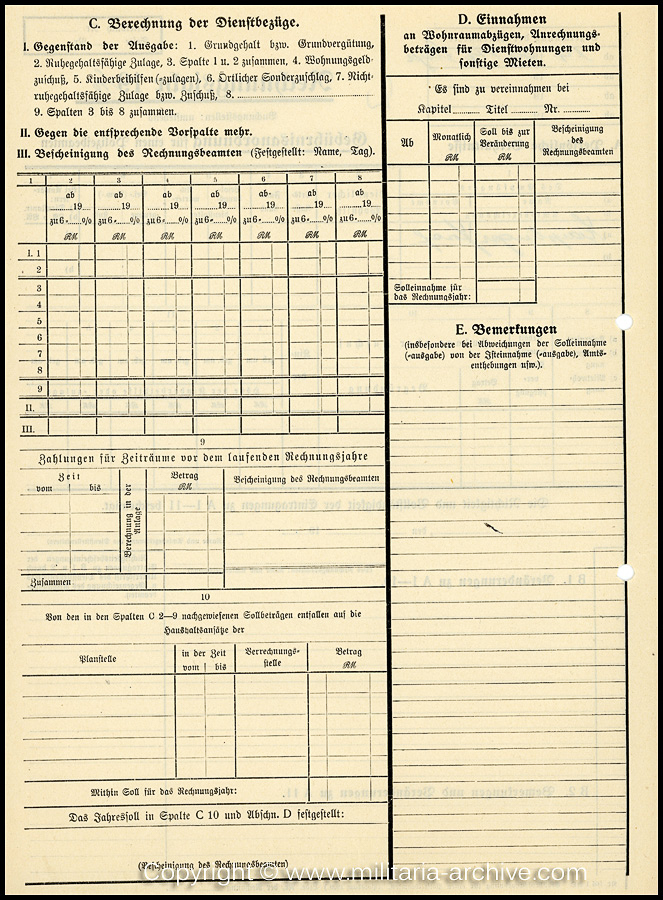 C. Berechnung der Dienstbezüge.
I. Gegenstand der Ausgabe: 1. Grundgehalt bzw. Grundvergütung,
2. Ruhegehaltsfähige Zulage, 3. Spalte 1 u. 2 zusammen, 4. Wohnungsgeld-
zuschuß, 5. Kinderbeihilfen (=zulagen), 6. Örtlicher Sonderzuschlag, 7. Nicht-
ruhegehaltsfähige Zulage bzw. Zuschuß, 8. ........
9. Spalten 3 bis 8 zusammen.
II. Gegen die entsprechende Vorspalte mehr.
III. Bescheinigung des Rechnungsbeamten (Festgestellt: Name, Tag).
1 2 3 4 5 6 7 8
ab ab ab ab ab ab ab
........19.. ........19.. ........19.. ........19.. ........19.. ........19.. ........19..
zu 6=......% zu 6=......% zu 6=......% zu 6=......% zu 6=......% zu 6=......% zu 6=......%
RM RM RM RM RM RM RM
I. 1
2
3
4
5
6
7
8
9
II.
III.
9
Zahlungen für Zeiträume vor dem laufenden Rechnungsjahre
Zeit
vom bis
Berechnung in der Anlage
Betrag
RM
Bescheinigung des Rechnungsbeamten
Zusammen
10
Von den in den Spalten C 2—9 nachgewiesenen Sollbeträgen entfallen auf die
Haushaltsansätze der
Planstelle
in der Zeit
vom bis
Verrechnungs-
stelle
Betrag
RM
Mithin Soll für das Rechnungsjahr:
Das Jahressoll in Spalte C 10 und Abschn. D festgestellt:
(Bescheinigung des Rechnungsbeamten)
D. Einnahmen
an Wohnraumabzügen, Anrechnungs-
beträgen für Dienstwohnungen und
sonstige Mieten.
Es sind zu vereinnahmen bei
Kapitel ........ Titel ........ Nr. ........
Ab
Monatlich
RM
Soll bis zur
Veränderung
RM
Bescheinigung
des
Rechnungsbeamten
Solleinnahme für
das Rechnungsjahr:
E. Bemerkungen
(insbesondere bei Abweichungen der Solleinnahme
(=ausgabe) von der Isteinnahme (=ausgabe), Amts-
enthebungen usw.).
Copyright © www.militaria-archive.com